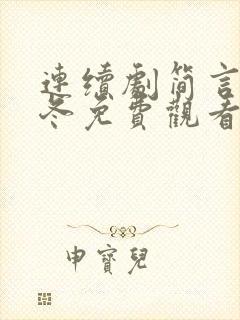 連續劇簡言
冬免費觀看
申寶兒